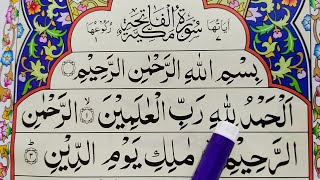 اٰیَاتُهَا ٧ سُوْرَةُ الْفَاتِحَةِ مَکِّیَّةٌ رُکُوْعُهَا ١
بِسْمِ اللّٰهِ الرَّحْمٰنِ الرَّحِیْمِ
اَلْحَمْدُ لِلّٰهِ رَبِّ الْعٰلَمِیْنَ ۙ﴿١﴾ الرَّحْمٰنِ
الرَّحِیْمِ مٰلِكِ یَوْمِ الدِّیْنِ ؕ﴿٣﴾